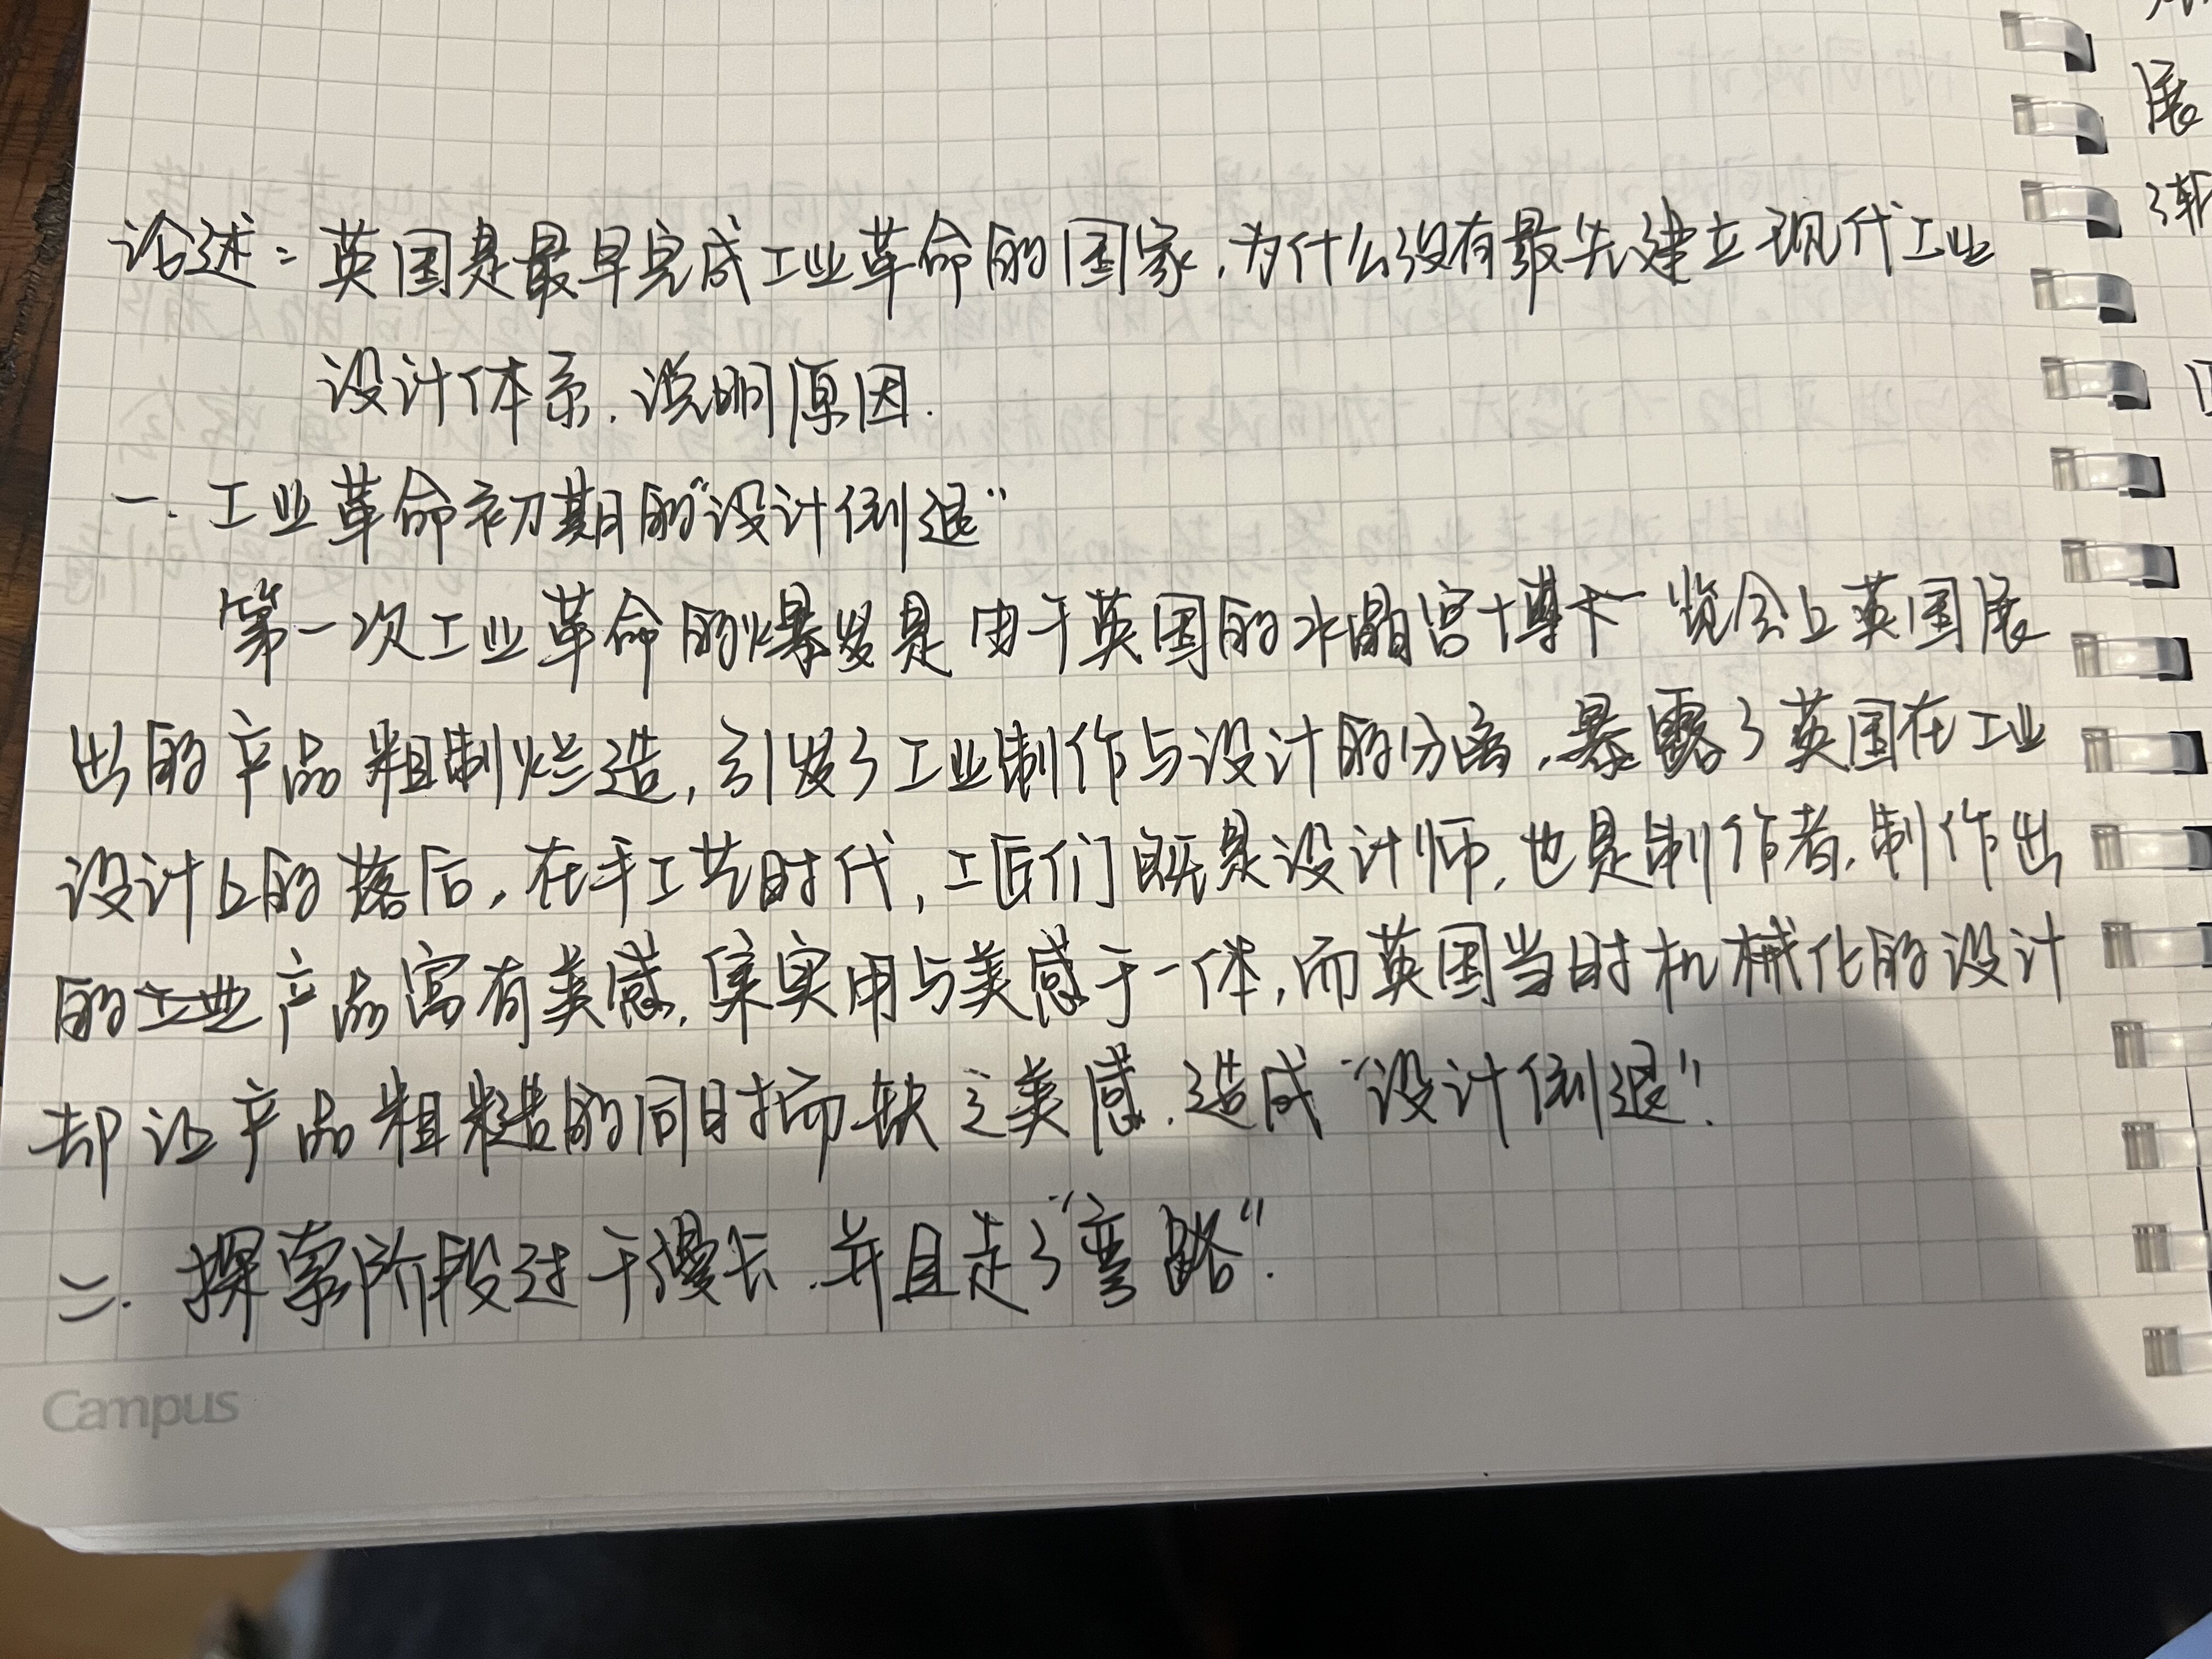 论述：英国是最早完成工业革命的国家，为什么没有最先建立现代工业
设计体系，说明原因.
一. 工业革命初期的“设计倒退”
第一次工业革命的爆发是由于英国的水晶宫博览会上英国展
出的产品粗制烂造，引发了工业制作与设计的分离，暴露了英国在工业
设计上的落后，在手工艺时代，工匠们既是设计师，也是制作者，制作出
的工业产品富有美感，集实用与美感于一体，而英国当时机械化的设计
却让产品粗糙的同时而缺乏美感，造成“设计倒退”.
二. 探索阶段过于漫长，并且走了“弯路”.
Campus
展
渐